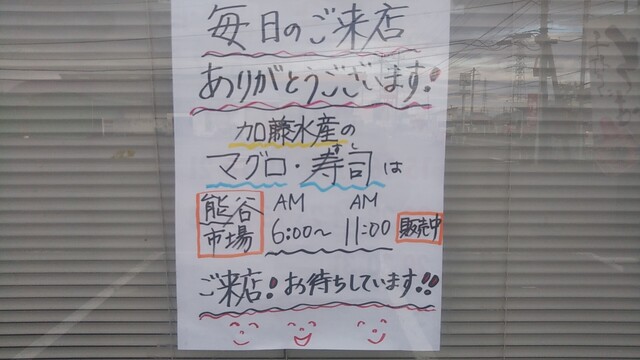 毎日のご来店
ありがとうございます!
加藤水産の
マグロ・寿司は
すし
熊谷市場 AM 6:00~ AM 11:00 販売中
ご来店!お待ちしています!!